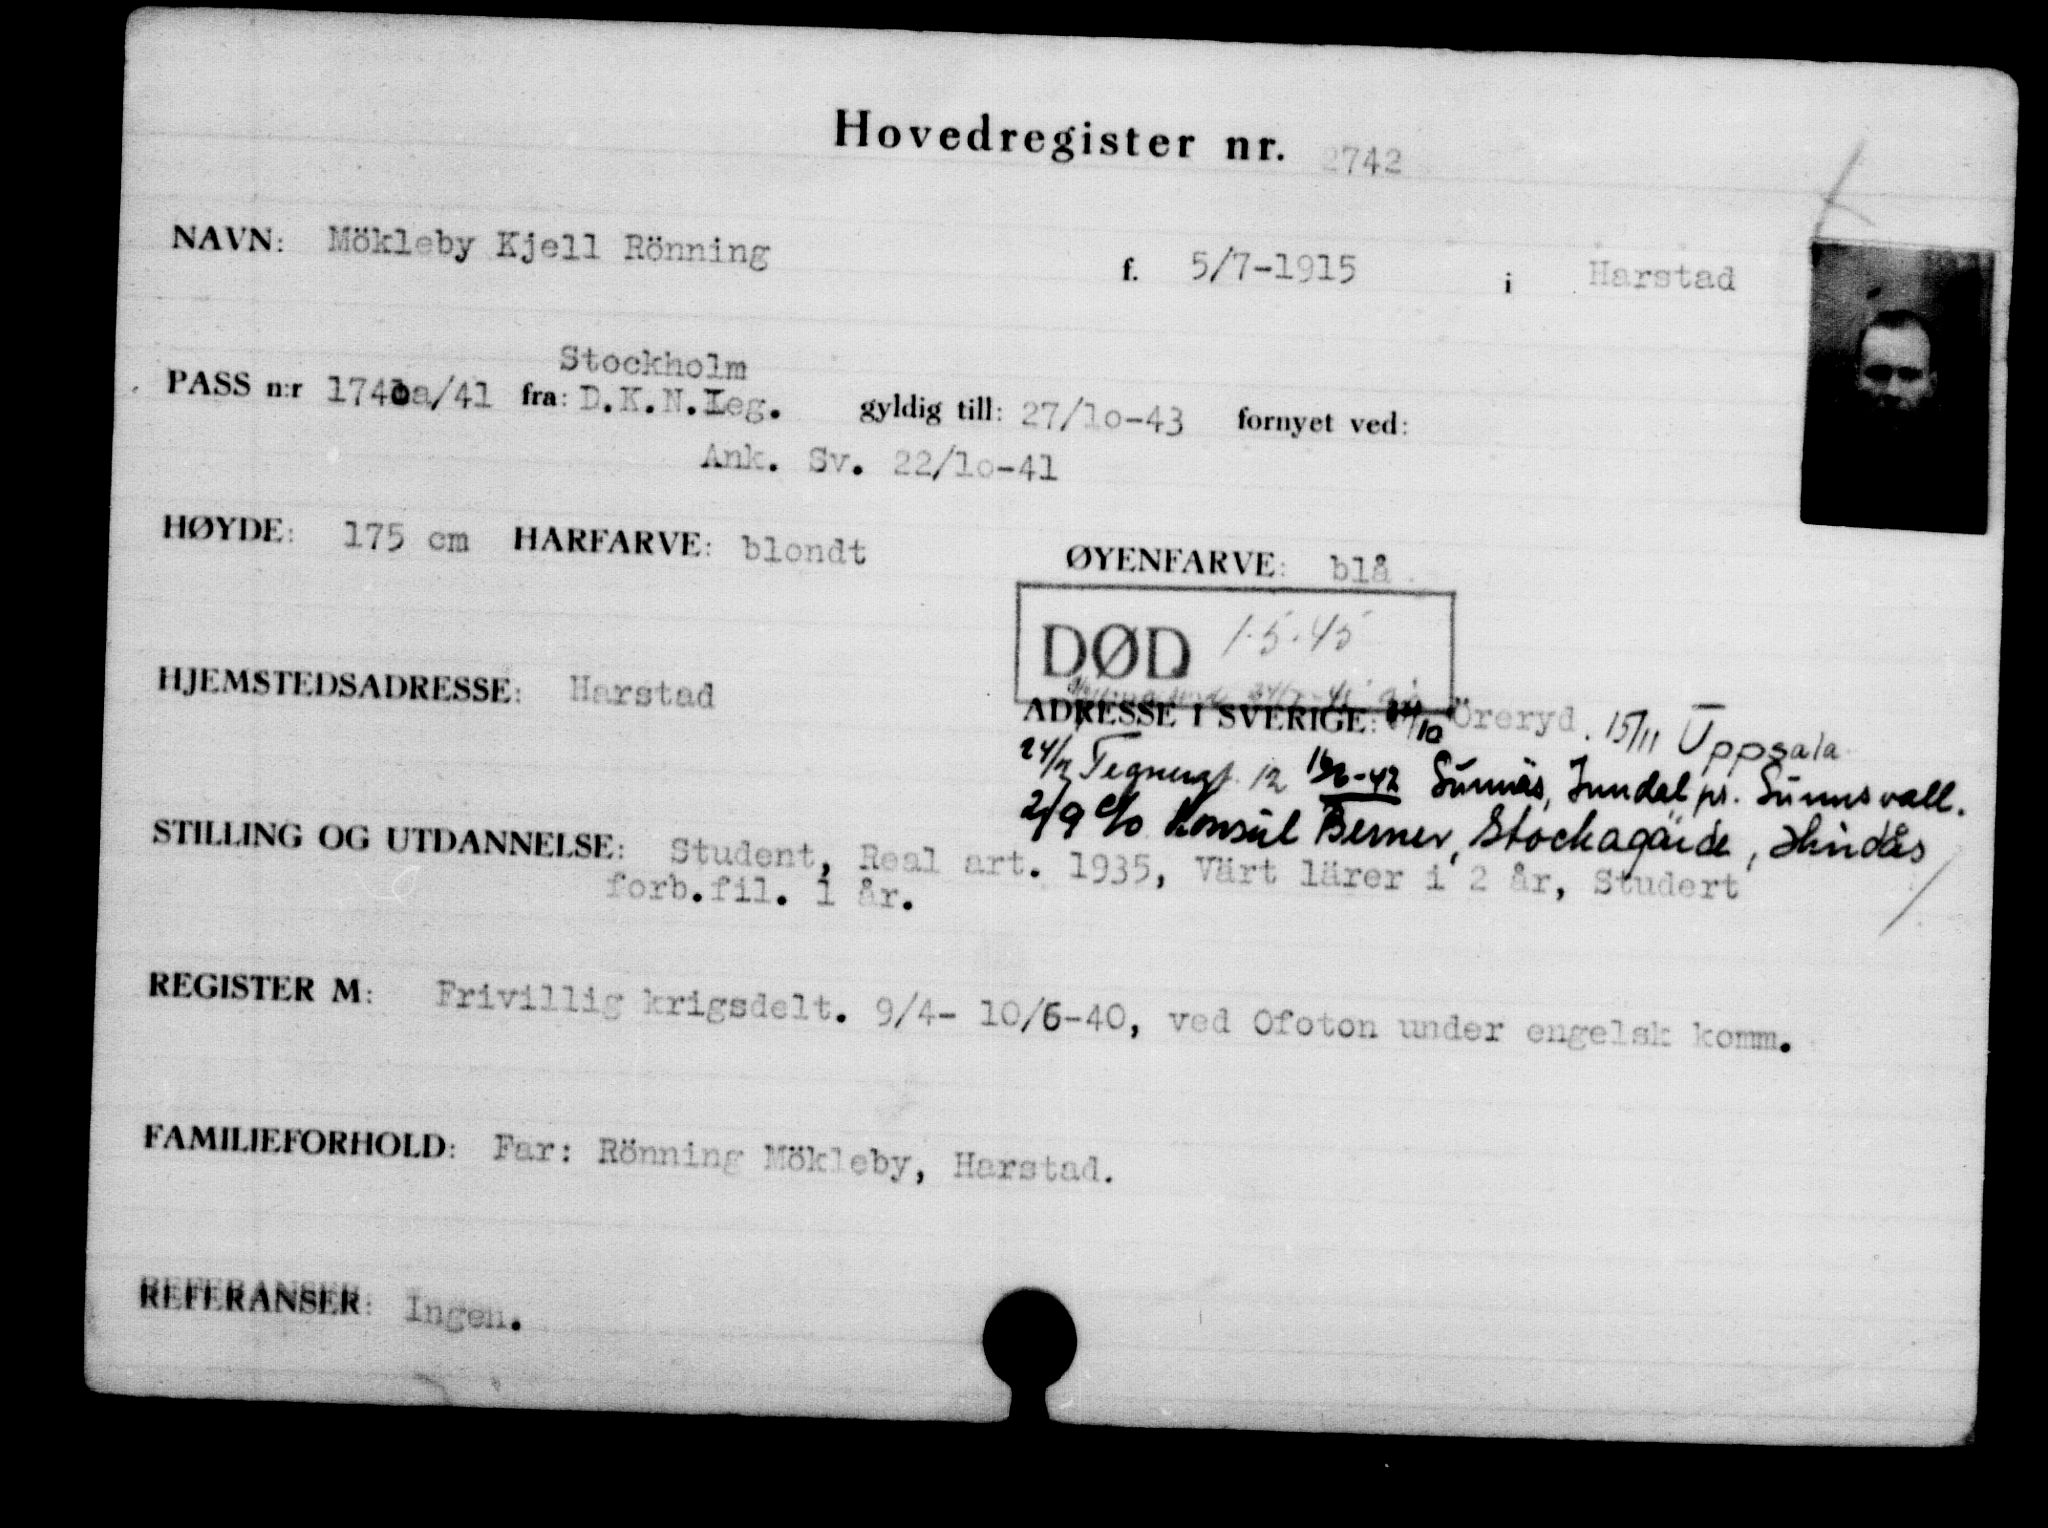 Hovedregister nr. 2742
NAVN: Mökleby Kjell Rönning f. 5/7-1915 i Harstad
Stockholm
PASS n:r 1740a/41 fra: D.K.N.Leg. gyldig till: 27/10-43 fornyet ved:
Ank. Sv. 22/10-41
HØYDE: 175 cm HARFARVE: blondt ØYENFARVE: blå
DØD 1.5.45
HJEMSTEDSADRESSE: Harstad
ADRESSE I SVERIGE: Öreryd. 15/11 Uppsala
Tegnergt. 12 Sunnäs, Jundal pr. Sunnsvall.
2/9 c/o Konsul Berner, Stockagärde, Hindås
STILLING OG UTDANNELSE: Student, Real art. 1935, Värt lärer i 2 år, Studert
forb.fil. 1 år.
REGISTER M: Frivillig krigsdelt. 9/4- 10/6-40, ved Ofoton under engelsk komm.
FAMILIEFORHOLD: Far: Rönning Mökleby, Harstad.
REFERANSER: Ingen.